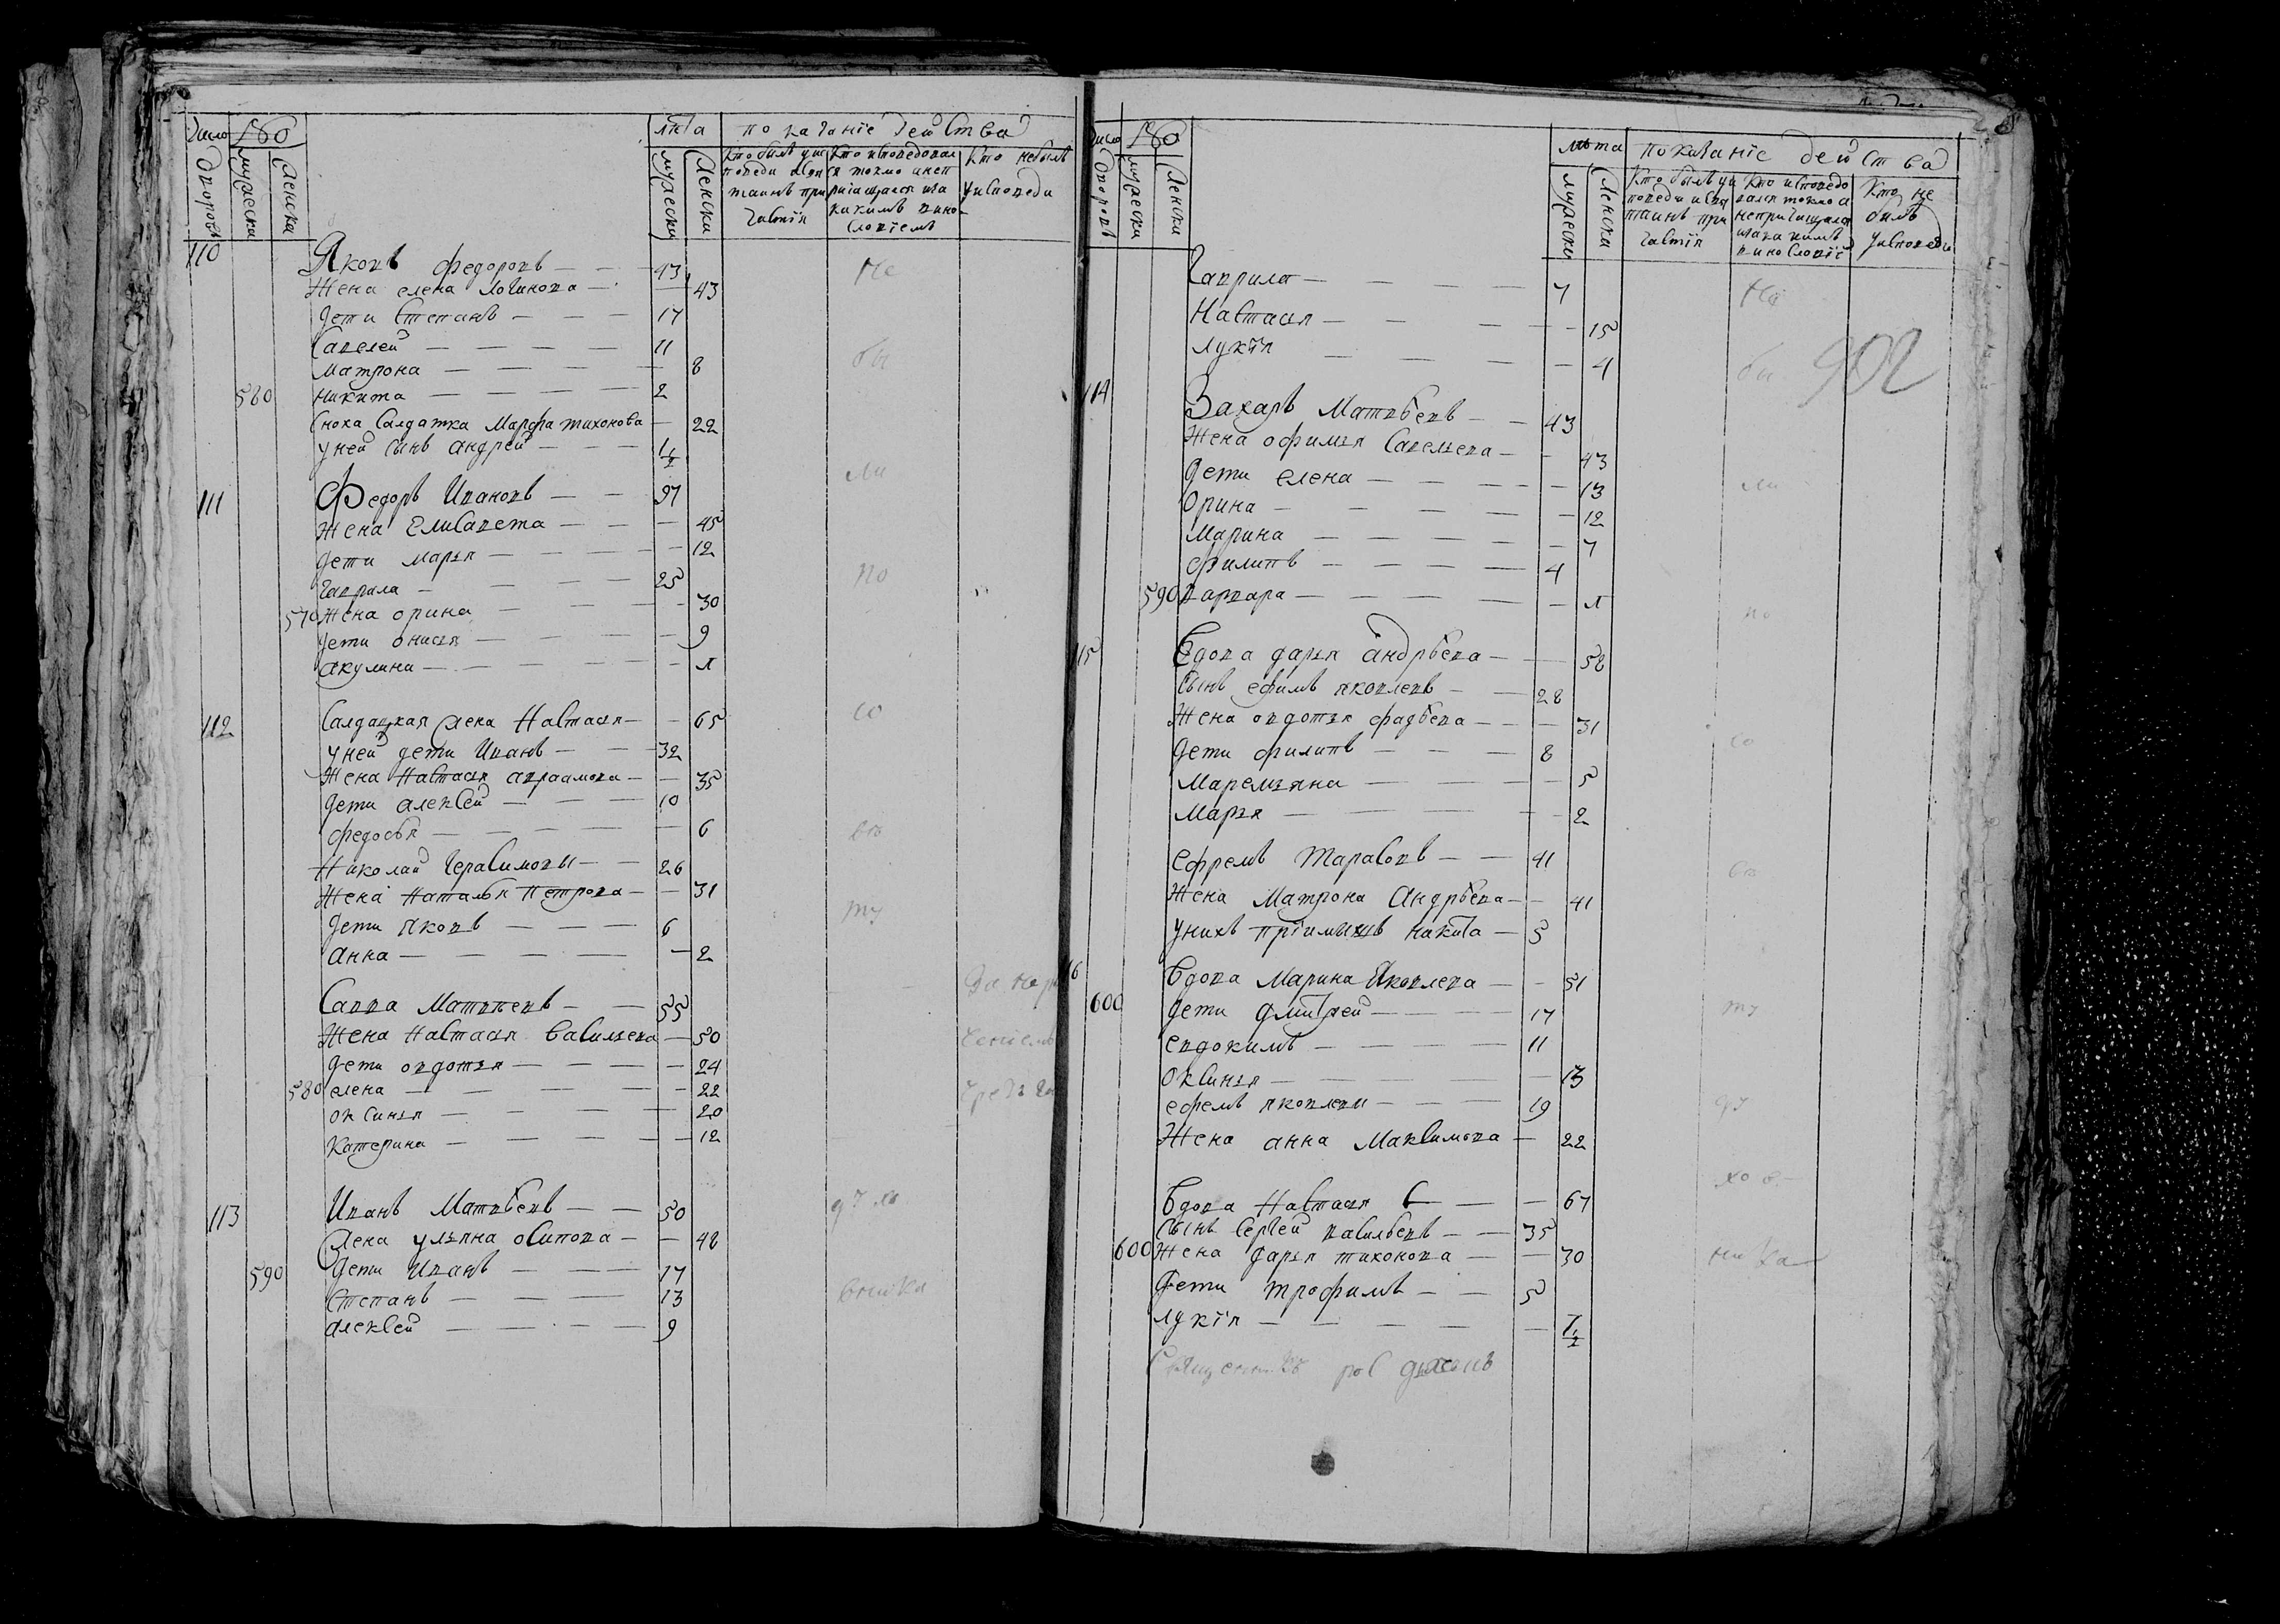 Число
дворовъ
мужески
женски
лѣта
мужески
женски
показаніе действа
Кто былъ у ис
поведи и свя
таинъ при
частія
Кто исповедовал
ся токмо а неп
ричащался и за
какимъ вино
словіемъ
Кто небылъ
уисповеди
110
Яковъ федоровъ — — 43
Жена елена Логинова — 43
Дети Степанъ — — 17
Савелей — — — — 11
Матрона — — — — 8
560 Никита — — — — 2
Сноха Салдатка Марфа тихонова — 22
уней сынъ андрей — — 1/2
111 Федоръ Ивановъ — — 97
Жена Елисавета — — — 45
Дети марья — — — — 12
Гаврила — — — — 25
570 Жена орина — — — 30
Дети онисья — — — — 9
акулина — — — — — 1
112 Салдацкая жена Настасья — — 65
уней дети Иванъ — — 32
Жена Настасья авраамова — — 35
Дети алексей — — — 10
федосья — — — — — 6
Николай Герасимовы — — 26
Жена Наталья петрова — — 31
Дети яковъ — — — 6
анна — — — — — 2
Савва Матвеевъ — — 55
Жена Настасья василиева — 50
Дети овдотья — — — — 24
580 елена — — — — 22
оксинья — — — — 20
Катерина — — — — — 12
113 Иванъ Матвѣевъ — — 50
Жена ульяна осипова — — 48
590 Дети Иванъ — — — 17
Степанъ — — — — 13
алексей — — — — 9
Не
бы
ли
по
со
вѣ
ту
дУ хо
вника
Число
дворовъ
мужески
женски
лѣта
мужески
женски
показаніе действа
Кто былъ уис
поведи и свя
таинъ при
частія
Кто исповедо
вался токмо а
непричащался
изакакимъ
винословіе
Кто не
былъ
уисповеди
Гаврила — — — — 7
Настасья — — — — 15
лукія — — — — 4
902
114 Захаръ Матвѣевъ — — 43
Жена офимья Савельева — — 43
Дети елена — — — — — 13
Орина — — — — — 12
Марина — — — — — 7
филипъ — — — — 4
590 варвара — — — — — 1
115 Вдова дарья андрѣева — — 58
Сынъ ефимъ яковлевъ — — 28
Жена овдотья фадѣева — — — 31
Дети филипъ — — — 8
Маремьяна — — — — 5
Марья — — — — — 2
ефремъ Тарасовъ — — 41
Жена Матрона Андрѣева — — 41
унихъ пріимышъ никита — 5
116 Вдова Марина Яковлева — — 51
600 Дети дмитрей — — — — 17
евдокимъ — — — — 11
Оксинья — — — — — 13
ефремъ яковлевы — — — 19
Жена анна Максимова — 22
Вдова Настасья — — — 67
Сынъ Сергей васильевъ — — 35
600 Жена дарья тихонова — — 30
Дети трофимъ — — 5
лукія — — — — — 1/2
Не
бы
ли
по
со
вѣ
ту
дУ
хо в
ника